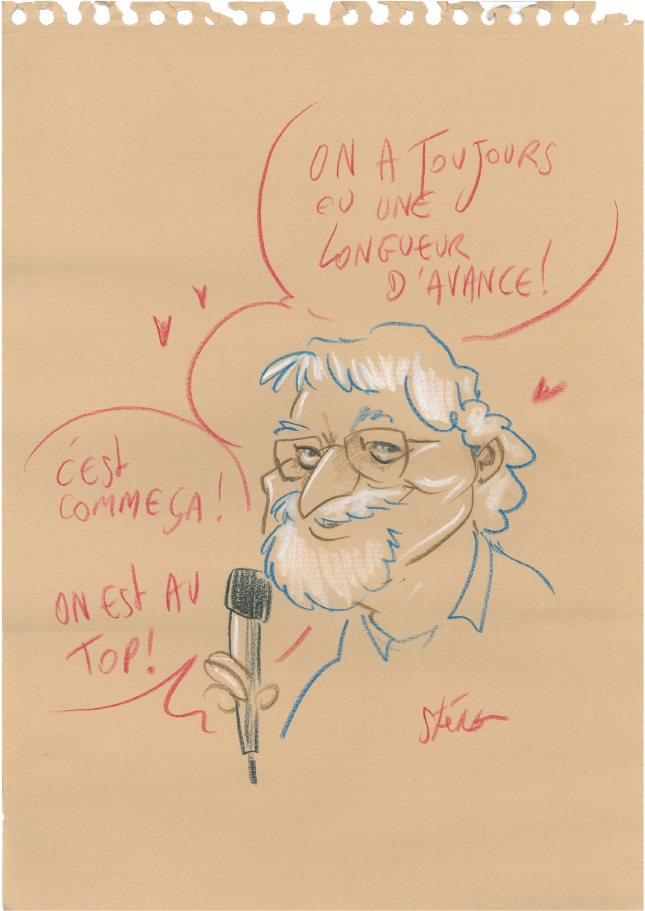 ON A TOUJOURS
EU UNE
LONGUEUR
D'AVANCE!
C'EST
COMME ÇA!
ON EST AU
TOP!